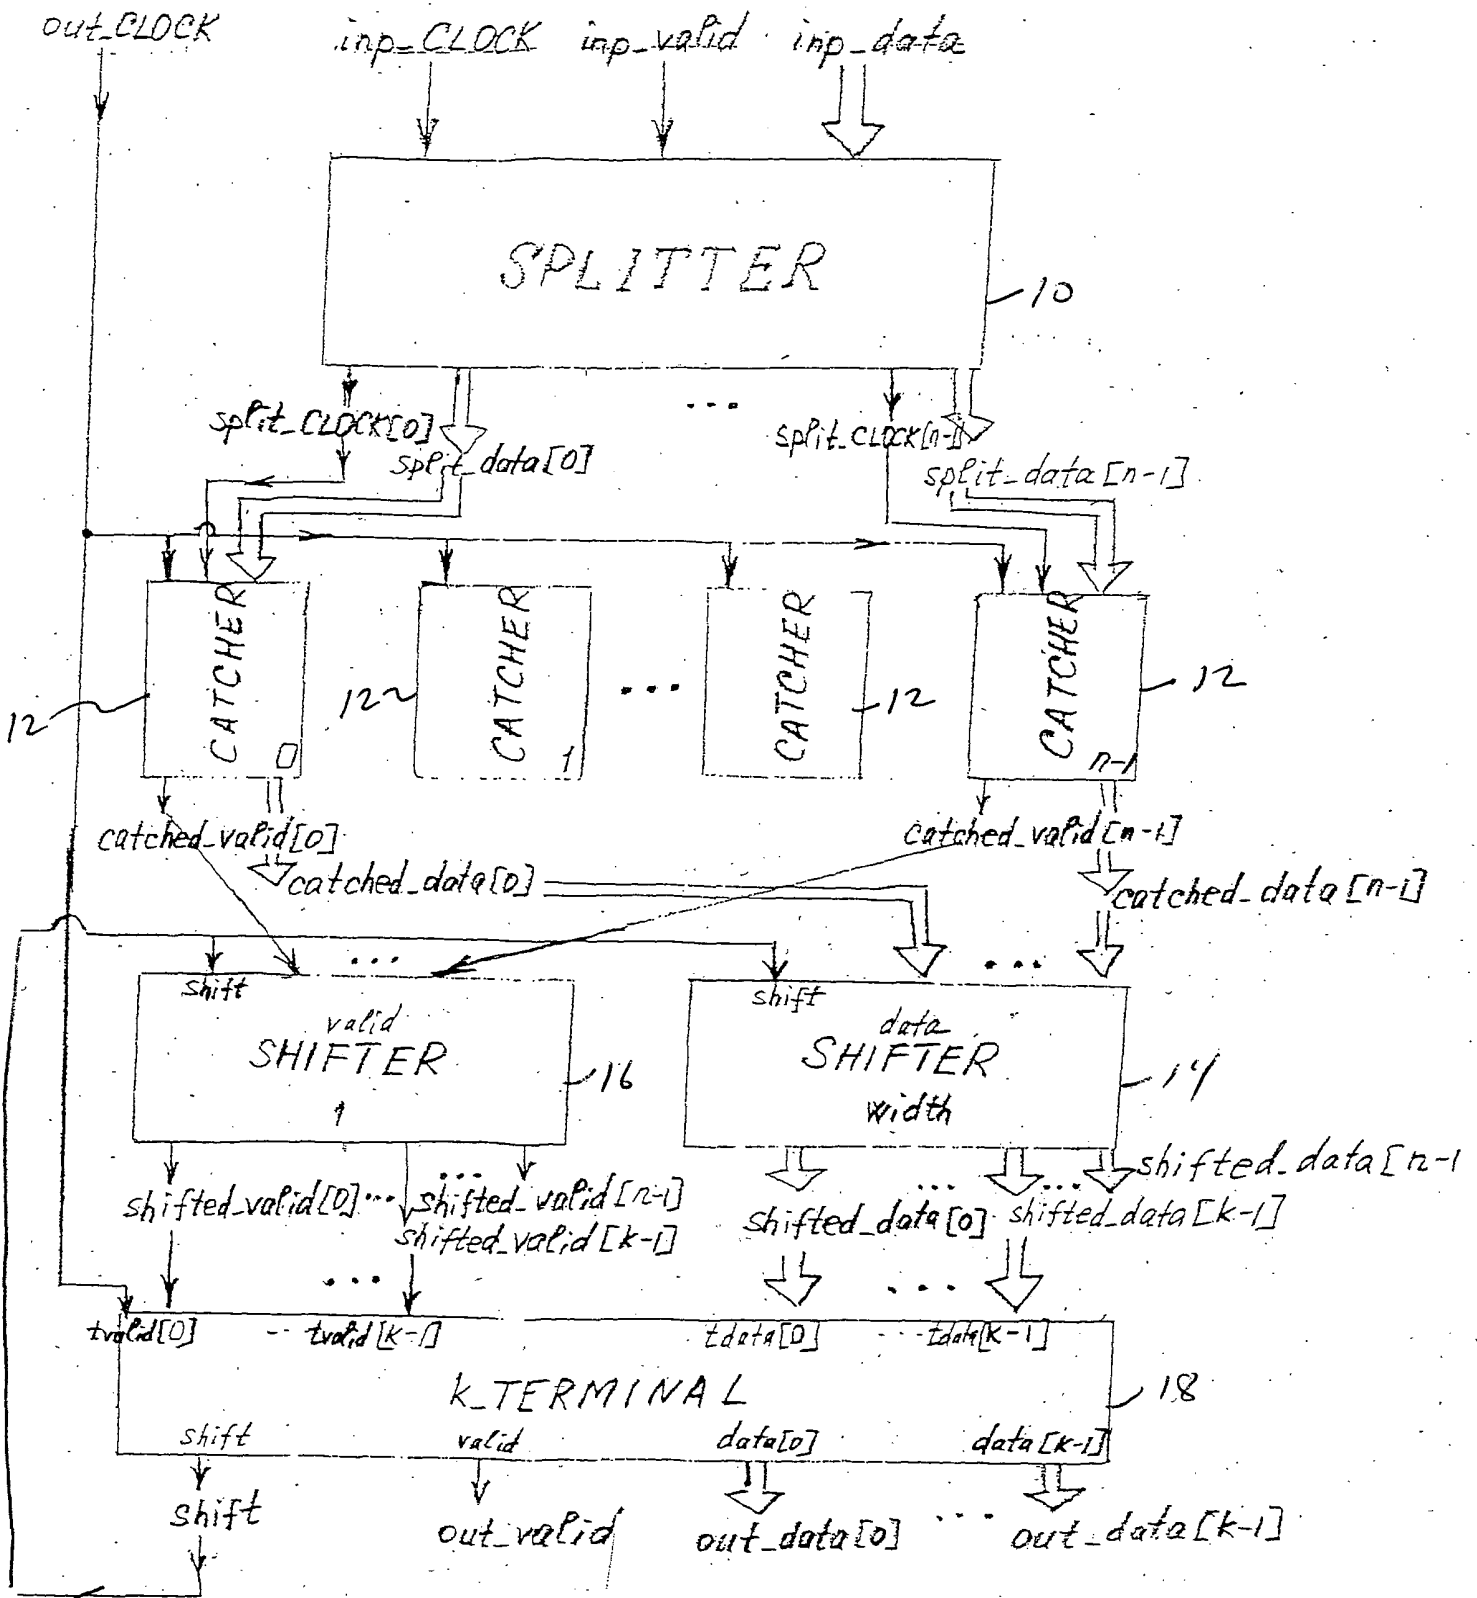 out_CLOCK inp_CLOCK inp_valid inp_data
SPLITTER
10
split_CLOCK[0] split_data[0] ... split_CLOCK[n-1] split_data[n-1]
CATCHER 0
CATCHER 1
...
CATCHER
CATCHER n-1
12 12 12 12
catched_valid[0] catched_valid[n-1]
catched_data[0] catched_data[n-1]
... ...
shift shift
valid data
SHIFTER SHIFTER
16 14
1 width
... shifted_data[n-1
shifted_valid[0] ... shifted_valid[n-1] ... ...
shifted_data[0] shifted_data[k-1]
shifted_valid[k-1]
... ...
tvalid[0] -- tvalid[k-1] tdata[0] ... tdata[k-1]
k_TERMINAL
18
shift valid data[0] data[k-1]
shift out_valid out_data[0] ... out_data[k-1]